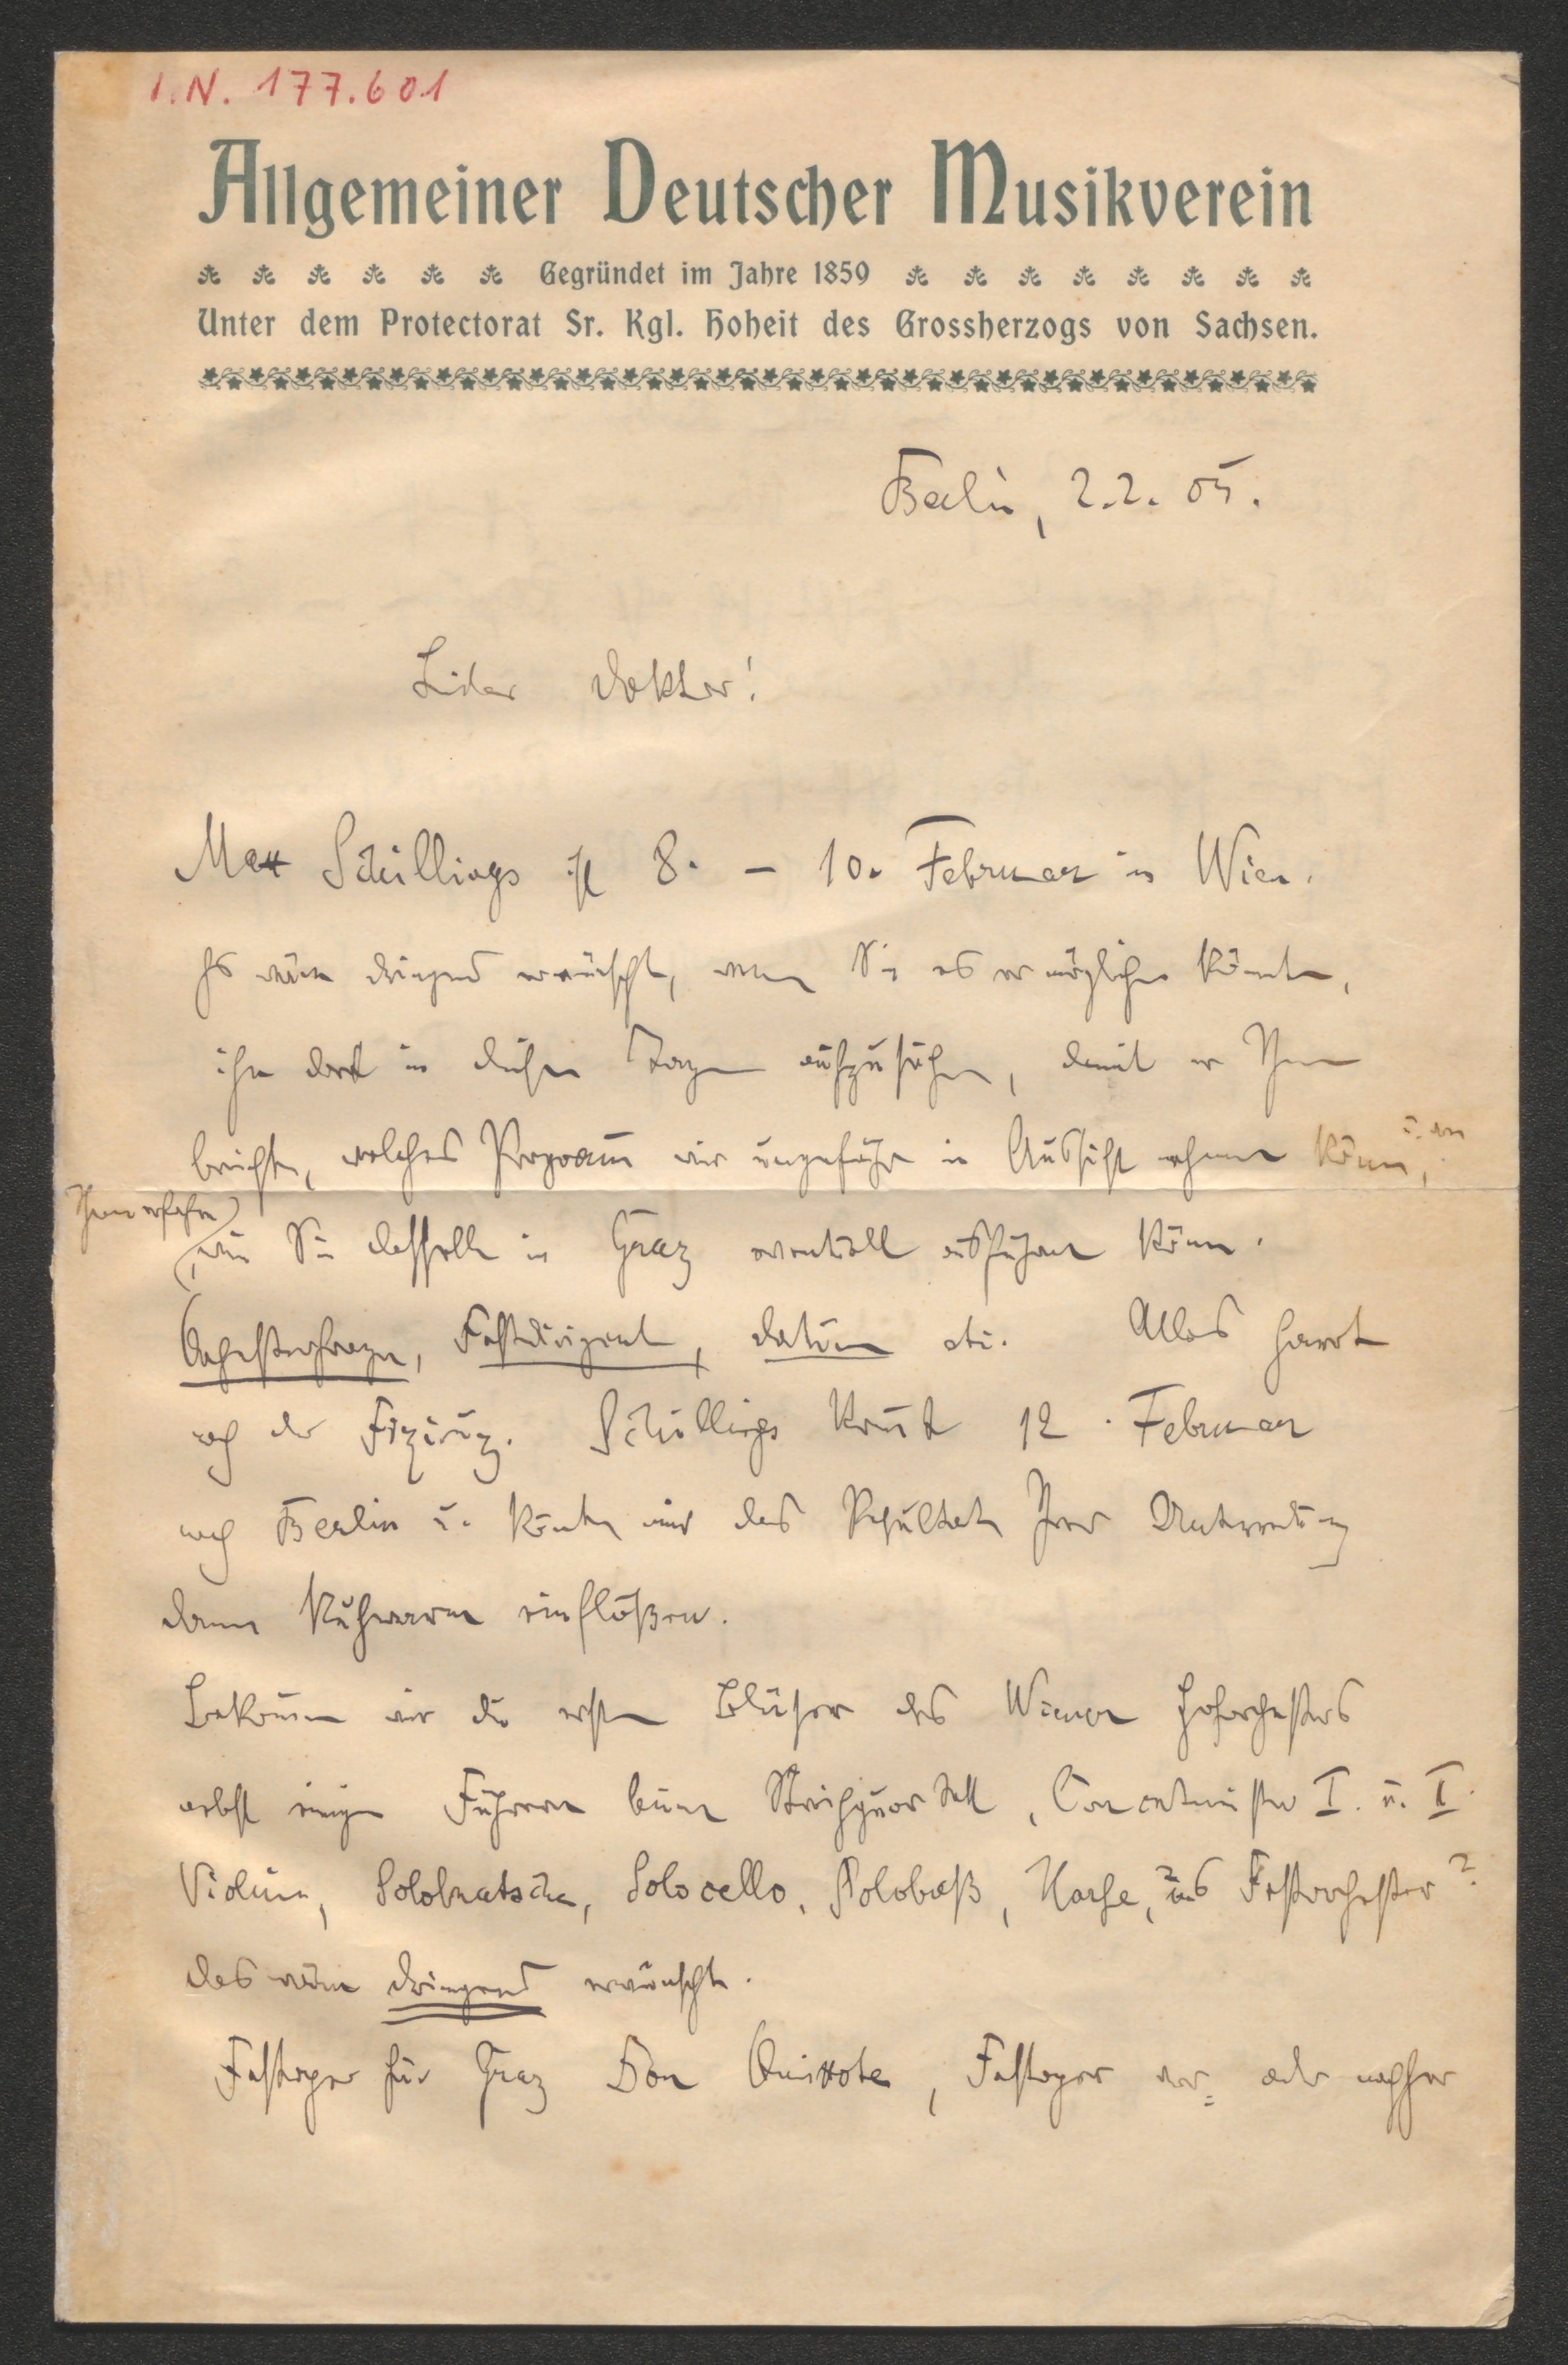 I.N. 177.601
Allgemeiner Deutscher Musikverein
Gegründet im Jahre 1859
Unter dem Protectorat Sr. Kgl. Hoheit des Grossherzogs von Sachsen.
Berlin, 2.2. 05.
Lieber Doktor!
Max Schillings ist 8. – 10. Februar in Wien.
Es wäre dringend erwünscht, wenn Sie es ermöglichen könnten,
ihn dort in diesen Tagen aufzusuchen, damit er Ihnen
berichte, welches Programm wir ungefähr in Aussicht nehmen können, u. von
Ihnen erfahre,
wie Sie dasselbe in Graz eventuell ausführen können.
Orchesterfragen, Festdirigent, Datum etc. Alles harrt
noch der Fixirung. Schillings kommt 12. Februar
nach Berlin u. könnte mir das Resultat Ihrer Unterredung
dann kuhwarm einflößen.
Bekommen wir die ersten Bläser des Wiener Hoforchesters
nebst einigen Führern beim Streichquartett, Concertmeister I. u. II.
Violine, Solobratsche, Solocello, Solobaß, Harfe, ins Festorchester?
Das wäre dringend erwünscht.
Festoper für Graz Don Quixote, Festoper vor= oder nachher